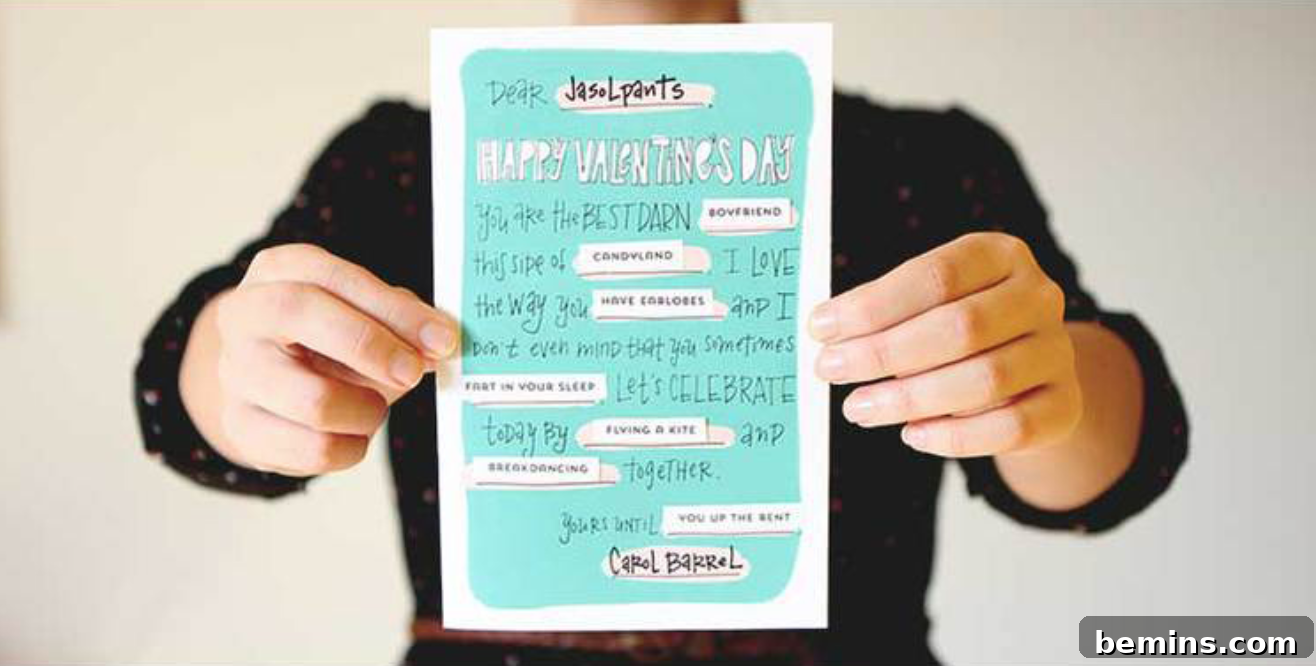 Dear Jasolpants.
HAPPY VALENTINE'S DAY
You are the BEST DARN BOYFRIEND
this side of CANDYLAND I LOVE
the way you HAVE EARLOBES and I
Don't even mind that you sometimes
FART IN YOUR SLEEP. Let's CELEBRATE
today By FLYING A KITE and
BREAKDANCING together.
yours until YOU UP THE RENT
Carol Barrel
bemins.com